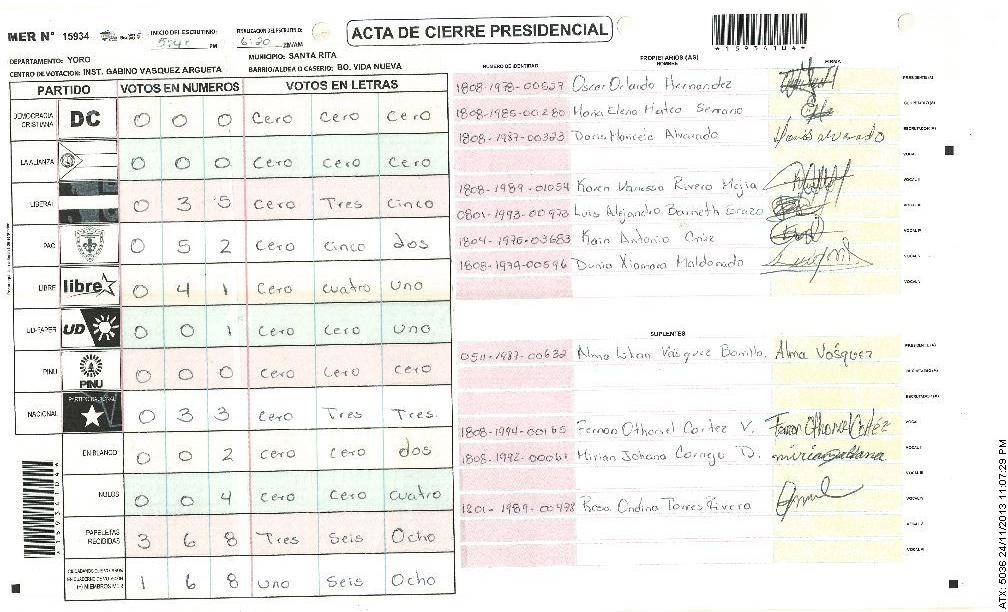 MER N° 15934
INICIO DEL ESCRUTINIO:
PM
FINALIZACION DEL ESCRUTINIO:
6:20
ACTA DE CIERRE PRESIDENCIAL
DEPARTAMENTO: YORO
MUNICIPIO: SANTA RITA
CENTRO DE VOTACION: INST. GABINO VASQUEZ ARGUETA
BARRIO/ALDEA O CASERIO: BO. VIDA NUEVA
PARTIDO VOTOS EN NUMEROS VOTOS EN LETRAS
DEMOCRACIA CRISTIANA DC 0 0 0 Cero Cero Cero
LA ALIANZA 0 0 0 Cero Cero Cero
LIBERAL 0 3 5 Cero Tres Cinco
PAC 0 5 2 Cero Cinco dos
LIBRE libre 0 4 1 Cero cuatro Uno
UD-FAPER UD 0 0 1 Cero Cero Uno
PINU PINU 0 0 0 Cero Cero Cero
NACIONAL PARTIDO NACIONAL 0 3 3 Cero Tres Tres.
EN BLANCO 0 0 2 Cero Cero dos
NULOS 0 0 4 Cero Cero Cuatro
PAPELETAS RECIBIDAS 3 6 8 Tres Seis Ocho
1 6 8 Uno Seis Ocho
PROPIETARIOS (AS)
NUMERO DE IDENTIDAD NOMBRE FIRMA
1808-1978-00529 Oscar Orlando Hernandez PRESIDENTE(A)
1808-1985-00280 Maria Elena Matco Serrano
1808-1987-00323 Doris Maricela Alvarado Doris alvarado ESCRUTADOR(A)
VOCAL I
1808-1989-01054 Karen Vanessa Rivera Mejia VOCAL II
0801-1993-00973 Luis Alejandro Barneth Erazo VOCAL III
1804-1975-03683 Kain Antonio Cruz VOCAL IV
1808-1979-00596 Dunia Xiomara Maldonado VOCAL V
SUPLENTES
0511-1987-00632 Alma Lilian Vásquez Bonilla. Alma Vásquez PRESIDENTE(A)
SECRETARIO(A)
ESCRUTADOR(A)
1808-1994-00165 Fernan Othoniel Cortez V. Fernan Othoniel Cortéz VOCAL I
1808-1992-00061 Mirian Johana Cornejo D. VOCAL II
VOCAL III
1801-1989-00498 Rosa Ondina Torres Rivera VOCAL IV
VOCAL V
*15934104*
ATX: 5036 24/11/2013 11:07:29 PM